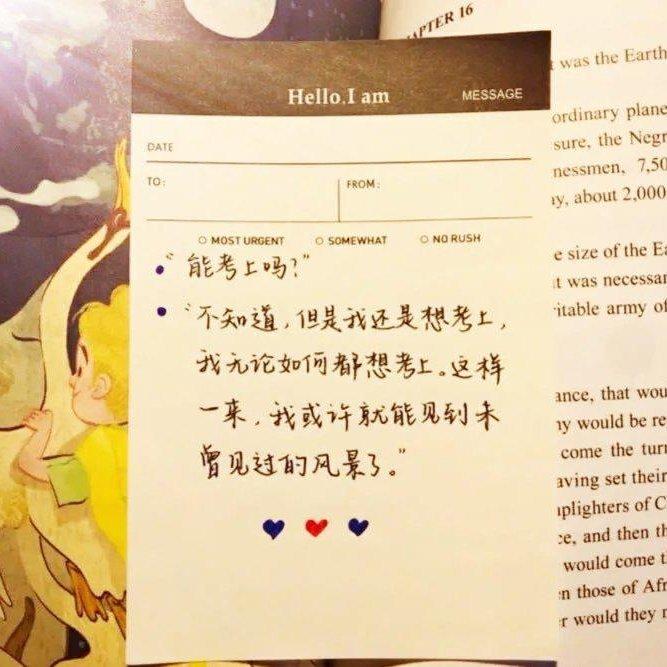 CHAPTER 16
was the Earth
ordinary plane
sure, the Negr
nessmen, 7,50
y, about 2,000
e size of the Ea
it was necessar
ritable army of
ance, that wou
ny would be re
come the turn
aving set their
mplighters of C
ce, and then th
would come t
en those of Afr
r would they m
Hello.I am MESSAGE
DATE
TO: FROM:
MOST URGENT SOMEWHAT NO RUSH
“能考上吗?”
“不知道,但是我还是想考上,
我无论如何都想考上。这样
一来,我或许就能见到未
曾见过的风景了。”